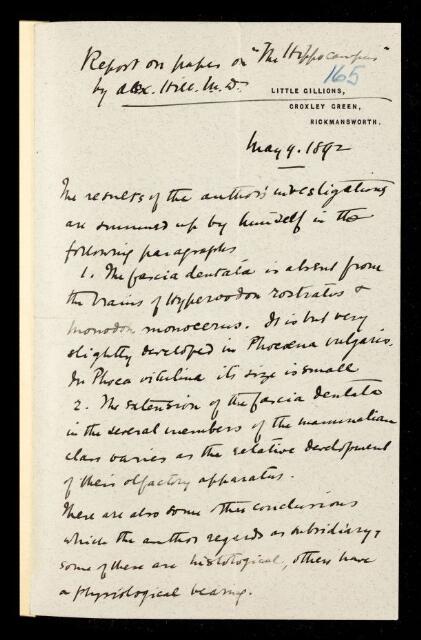 Report on paper on "The Hippocampus"
165
by Alex. Hill. M.D.
LITTLE GILLIONS,
CROXLEY GREEN,
RICKMANSWORTH.
May 9. 1892
The results of the author's investigations
are summed up by himself in the
following paragraphs
1. The fascia dentata is absent from
the brains of Hyperoodon rostratus &
Monodon monocerus. It is but very
slightly developed in Phocœna vulgaris.
In Phoca vitulina its size is small
2. The extension of the fascia dentata
in the several members of the mammalian
class varies as the relative development
of their olfactory apparatus.
There are also some other conclusions
which the author regards as subsidiary,
some of these are histological, others have
a physiological bearing.